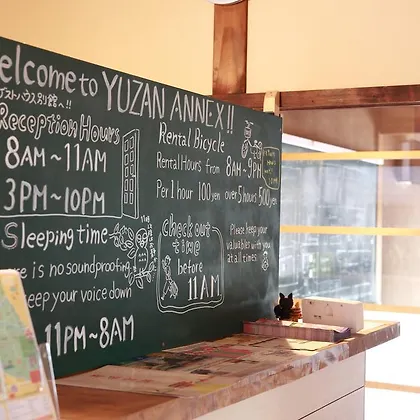 elcome to YUZAN ANNEX!!
ゲストハウス別館へ!!
Reception Hours
8AM~11AM
3PM~10PM
Sleeping time
re is no soundproofing
eep your voice down
11PM~8AM
Rental Bicycle
Rental Hours from 8AM~9PM
Per 1 hour 100yen over 5 hours 500yen
check out
time
before
11AM
Please keep your
valuables with you
at all times